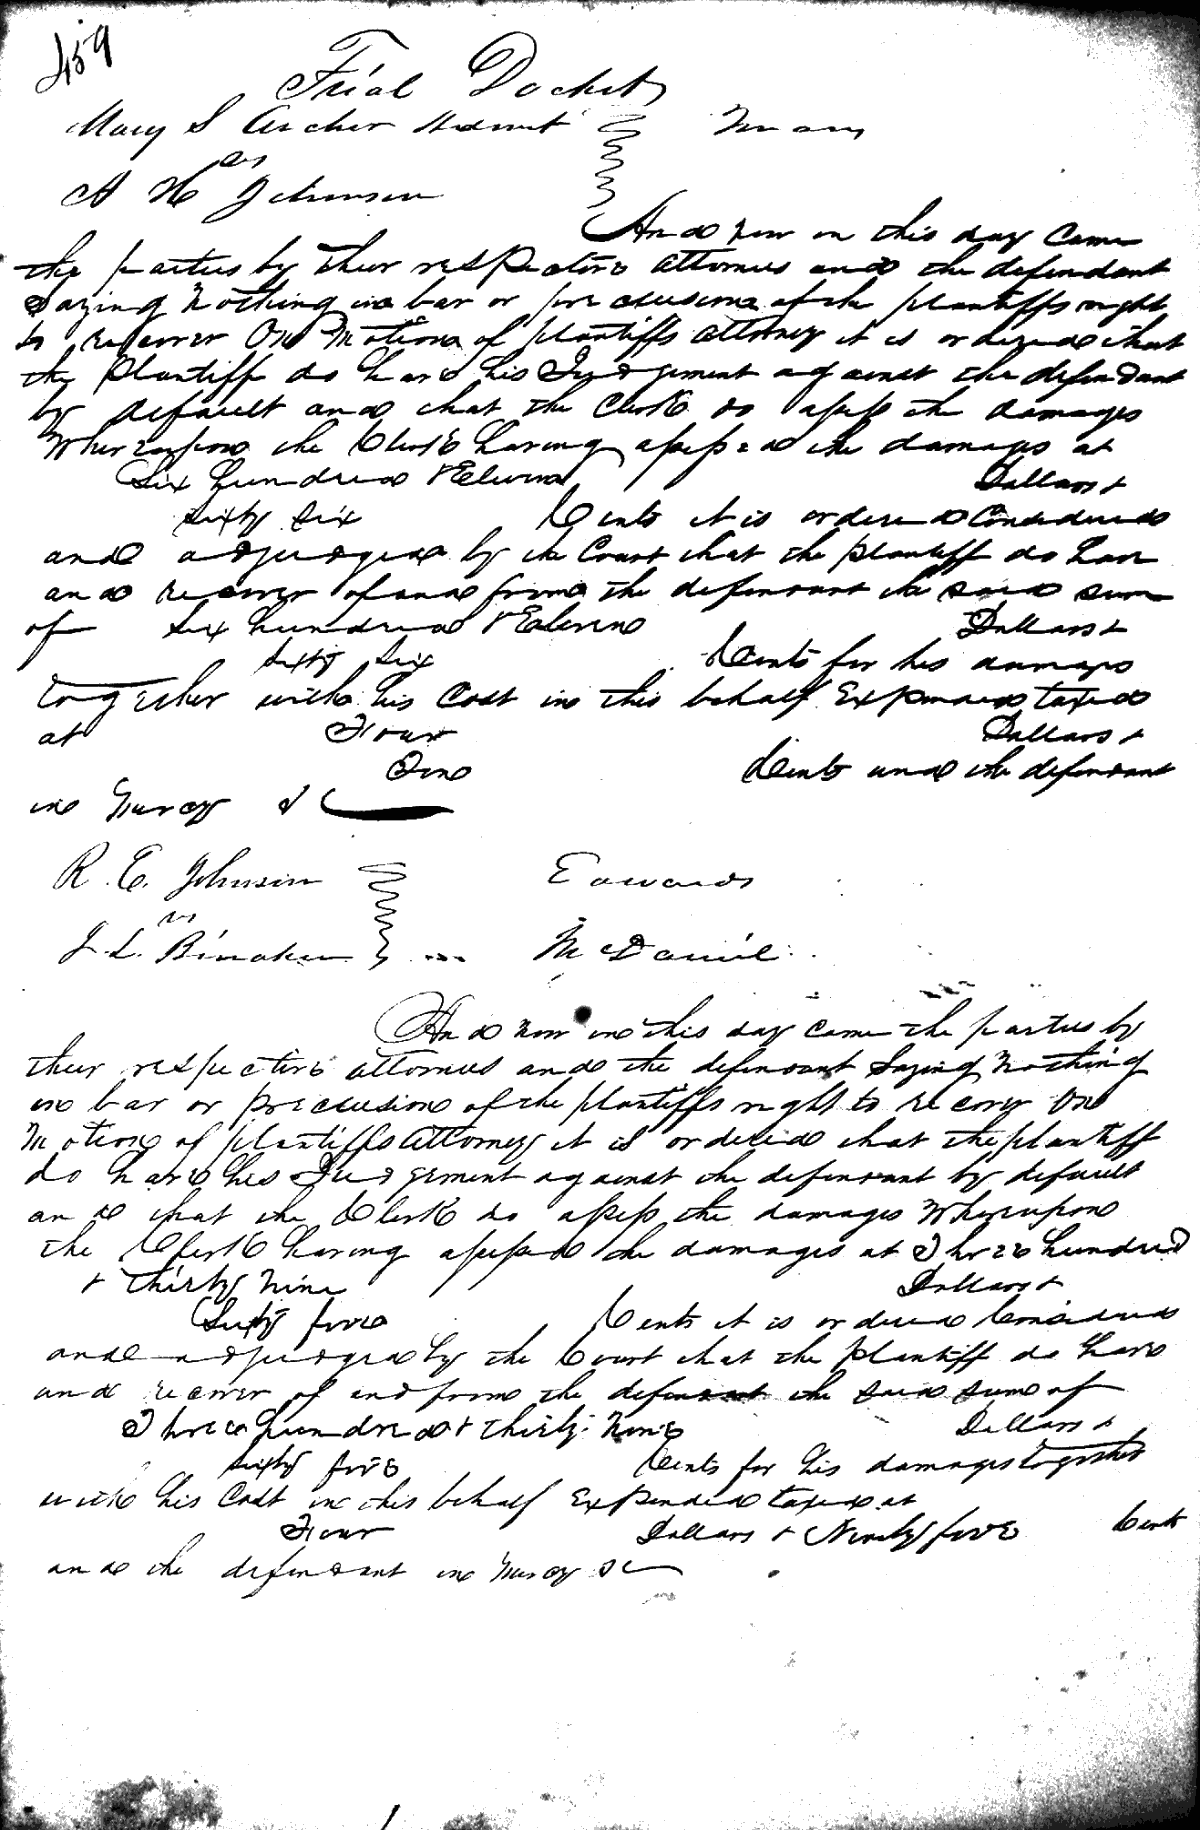 459
Trial Docket
Mary S Archer Admnt
vs
A H Johnson
And now on this day Came
the parties by their respective attornies and the defendant
Saying Nothing in bar or preclusion of the plantiffs right
to recover On Motion of plantiffs attorney it is ordered that
the Plantiff do have his Judgement against the defendant
by default and that the Clerk do assess the damages
Whereupon the Clerk having assessed the damages at
Six hundred & Eleven Dollars &
Sixty Six Cents it is ordered Considered
and adjudged by the Court that the plantiff do have
and recover of and from the defendant the said sum
of Six hundred & Eleven Dollars &
Sixty Six Cents for his damages
together with his Cost in this behalf Expended taxed
at Four Dollars &
One Cents and the defendant
in Mercy &c
R. E. Johnson Edwards
vs
J. L. McDaniel
And now on this day came the parties by
their respective attornies and the defendant Saying Nothing
in bar or preclusion of the plantiffs right to recover On
Motion of plantiffs Attorney it is ordered that the plantiff
do have his Judgement against the defendant by default
and that the Clerk do assess the damages Whereupon
the Clerk having assessed the damages at Three hundred
& thirty Nine Dollars &
Sixty five Cents it is ordered Considered
and adjudged by the Court that the plantiff do have
and recover of and from the defendant the said sum of
Three hundred & thirty Nine Dollars &
Sixty five Cents for his damages together
with his Cost in this behalf Expended taxed at
Four Dollars & Ninety five Cents
and the defendant in Mercy &c